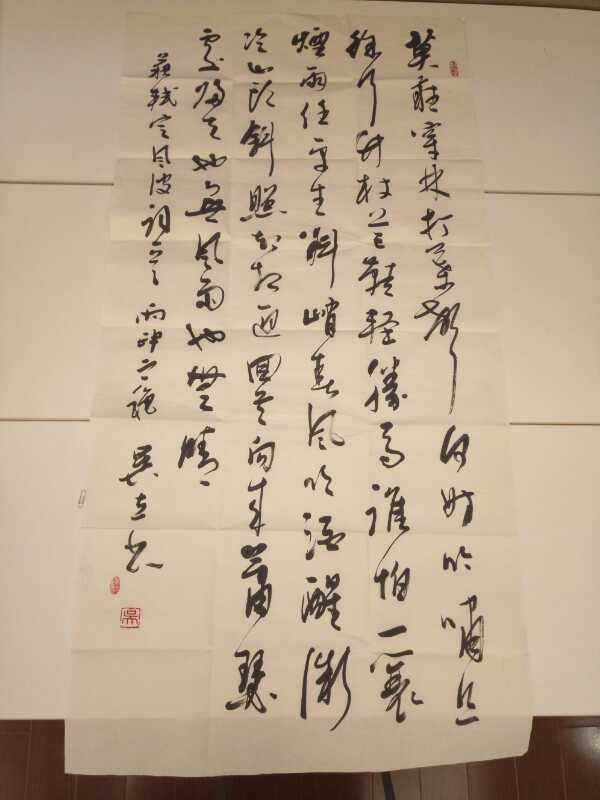 莫聽穿林打葉聲何妨吟嘯且
徐行竹杖芒鞋輕勝馬誰怕一蓑
煙雨任平生料峭春風吹酒醒微
冷山頭斜照却相迎回首向來蕭瑟
處歸去也無風雨也無晴
蘇軾定風波詞意 丙申之秋 吳立書